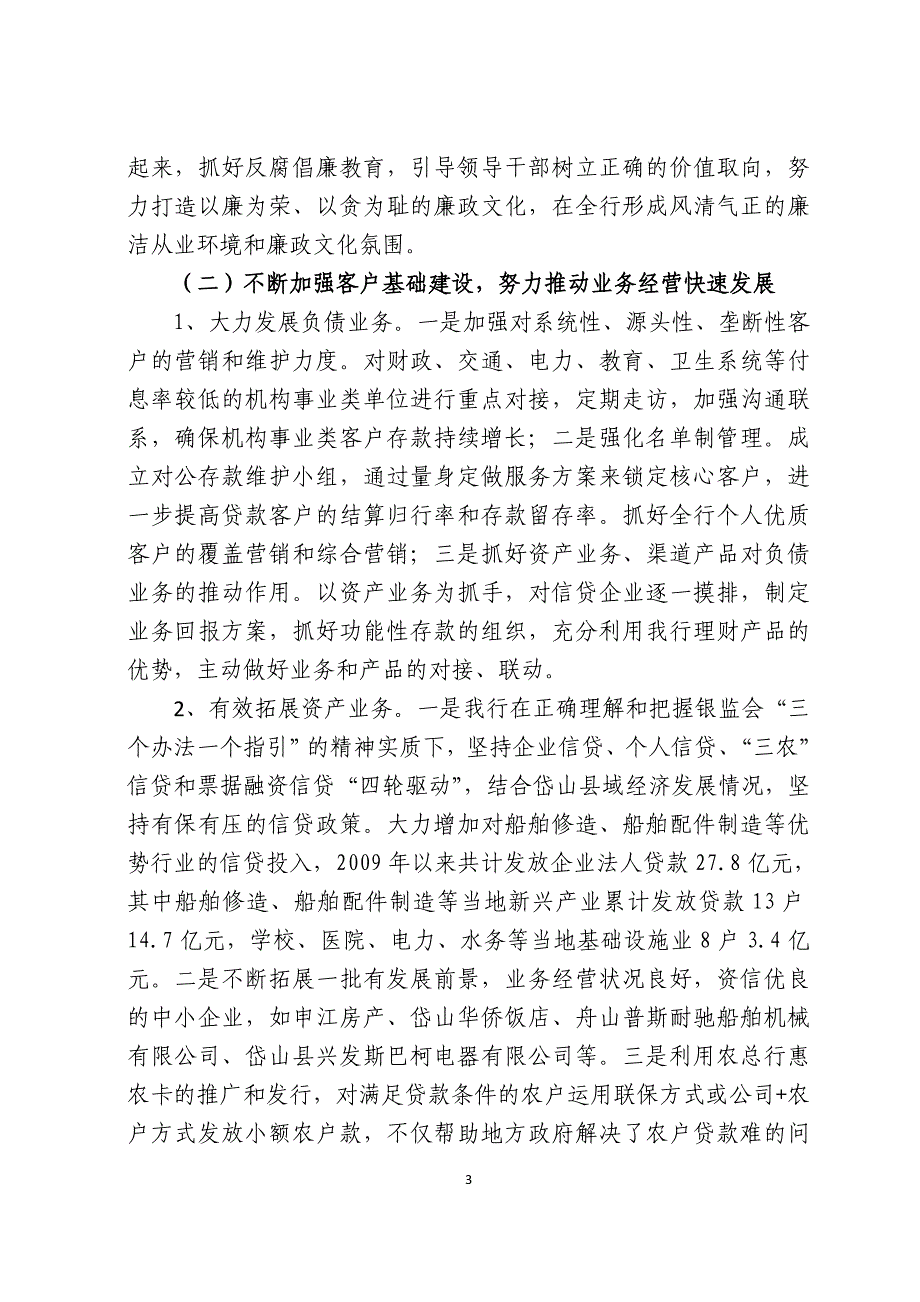 起来，抓好反腐倡廉教育，引导领导干部树立正确的价值取向，努
力打造以廉为荣、以贪为耻的廉政文化，在全行形成风清气正的廉
洁从业环境和廉政文化氛围。
（二）不断加强客户基础建设，努力推动业务经营快速发展
1、大力发展负债业务。一是加强对系统性、源头性、垄断性客
户的营销和维护力度。对财政、交通、电力、教育、卫生系统等付
息率较低的机构事业类单位进行重点对接，定期走访，加强沟通联
系，确保机构事业类客户存款持续增长；二是强化名单制管理。成
立对公存款维护小组，通过量身定做服务方案来锁定核心客户，进
一步提高贷款客户的结算归行率和存款留存率。抓好全行个人优质
客户的覆盖营销和综合营销；三是抓好资产业务、渠道产品对负债
业务的推动作用。以资产业务为抓手，对信贷企业逐一摸排，制定
业务回报方案，抓好功能性存款的组织，充分利用我行理财产品的
优势，主动做好业务和产品的对接、联动。
2、有效拓展资产业务。一是我行在正确理解和把握银监会“三
个办法一个指引”的精神实质下，坚持企业信贷、个人信贷、“三农”
信贷和票据融资信贷“四轮驱动”，结合岱山县域经济发展情况，坚
持有保有压的信贷政策。大力增加对船舶修造、船舶配件制造等优
势行业的信贷投入，2009 年以来共计发放企业法人贷款 27.8 亿元，
其中船舶修造、船舶配件制造等当地新兴产业累计发放贷款 13 户
14.7 亿元，学校、医院、电力、水务等当地基础设施业 8 户 3.4 亿
元。二是不断拓展一批有发展前景，业务经营状况良好，资信优良
的中小企业，如申江房产、岱山华侨饭店、舟山普斯耐驰船舶机械
有限公司、岱山县兴发斯巴柯电器有限公司等。三是利用农总行惠
农卡的推广和发行，对满足贷款条件的农户运用联保方式或公司+农
户方式发放小额农户款，不仅帮助地方政府解决了农户贷款难的问
3